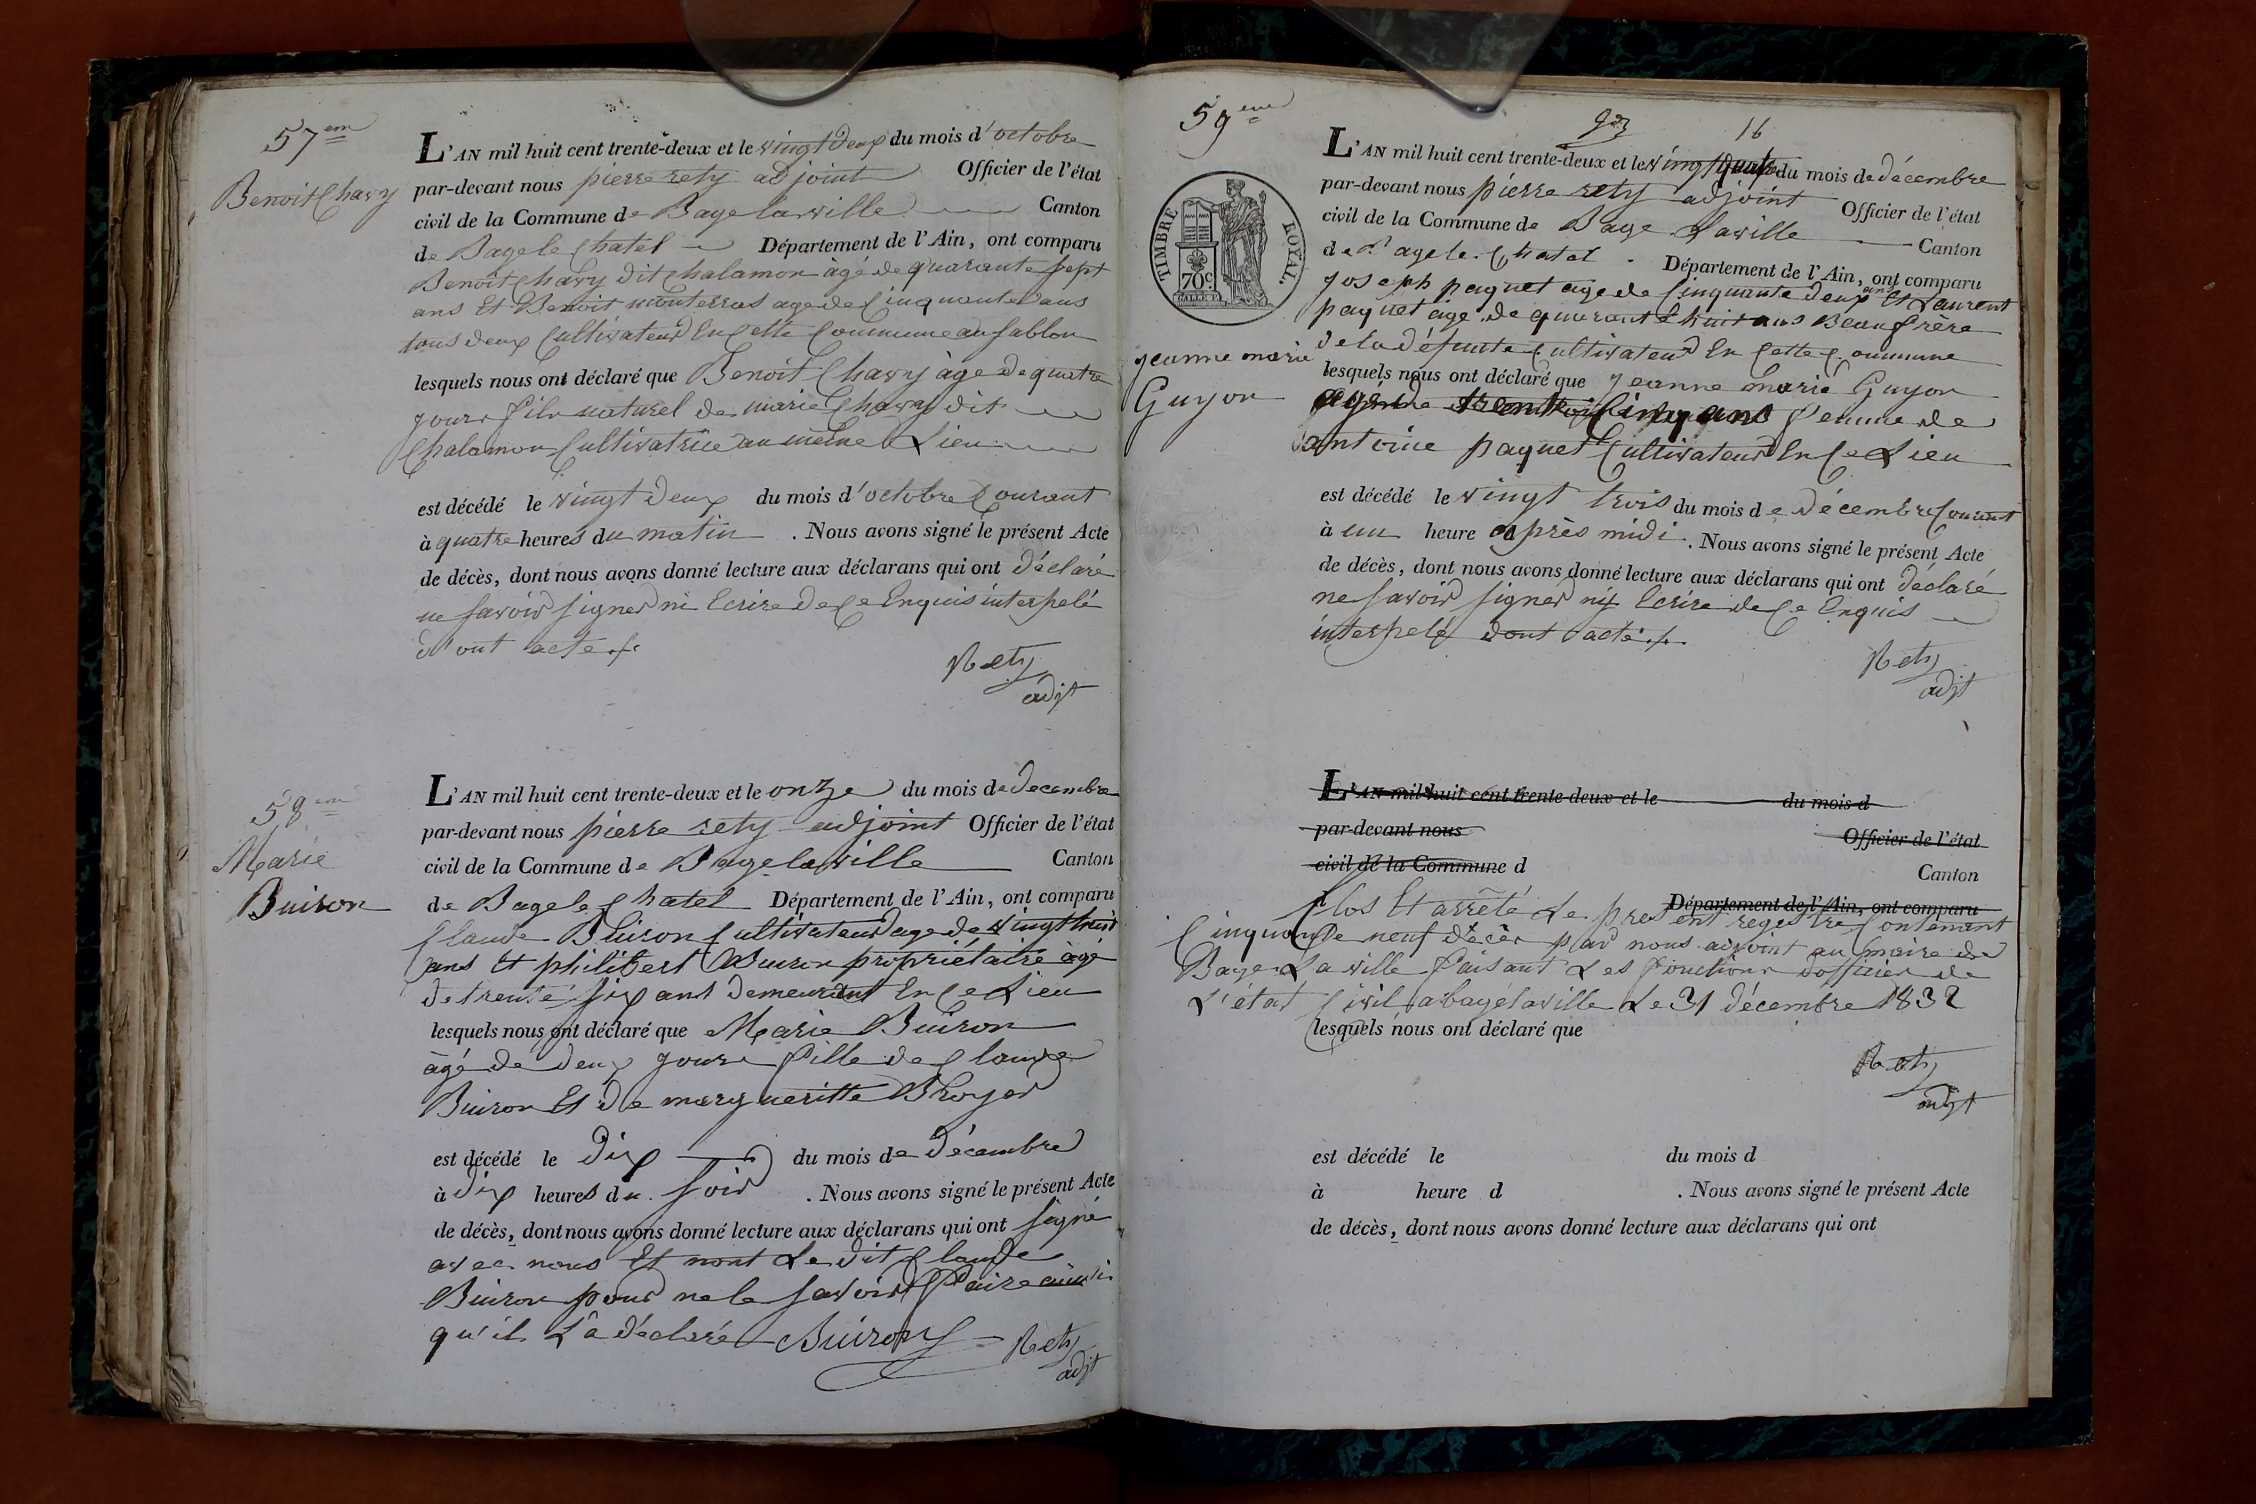 57em
Benoit Chavy
L'AN mil huit cent trente-deux et le vingt deux du mois d'octobre
par-devant nous pierre rety adjoint Officier de l'état
civil de la Commune de Bage laville Canton
de Bage le Chatel Département de l'Ain, ont comparu
Benoit Chavy dit Chalamon àgé de quarante sept
ans Et Benoit monterras age de Cinquante ans
tous deux Cultivateur En Cette Commune au sablon
lesquels nous ont déclaré que Benoit Chavy àge de quatre
jours fils naturel de marie Chavy dit
Chalamon Cultivatrice au même Lieu
est décédé le vingt deux du mois d'octobre Courant
à quatre heures du matin . Nous avons signé le présent Acte
de décès, dont nous avons donné lecture aux déclarans qui ont déclaré
ne savoir signer ni Ecrire de Ce Enquis interpelé
d'ont acte
Rety
adjt
58em
Marie
Buiron
L'AN mil huit cent trente-deux et le onze du mois de decembre
par-devant nous pierre rety adjoint Officier de l'état
civil de la Commune de Bage laville Canton
de Bage le Chatel Département de l'Ain, ont comparu
Claude Buiron Cultivateur age de vingt huit
ans Et philibert Buiron propriétaire àgé
de trente six ans demeurant En Ce Lieu
lesquels nous ont déclaré que Marie Buiron
àgé de deux jours fille de Claude
Buiron Et de margueritte Broyer
est décédé le dix du mois de décembre
à dix heures du soir . Nous avons signé le présent Acte
de décès, dont nous avons donné lecture aux déclarans qui ont signé
avec nous Et nont Le dit Claude
Buiron pour ne le savoir faire ainsi
qu'il L'a déclaré Buiron Rety
adjt
59eme
16
TIMBRE ROYAL.
70c
L'AN mil huit cent trente-deux et le vingt quatre du mois de décembre
par-devant nous pierre rety adjoint Officier de l'état
civil de la Commune de Bage Laville Canton
de Bage le Chatel Département de l'Ain, ont comparu
joseph paquet age de Cinquante deux ans Et Laurent
paquet age de quarante huit ans Beaufrère
de la défunte Cultivateur En Cette Commune
jeanne marie
Guyon
lesquels nous ont déclaré que jeanne marie Guyon
agée de trente Cinq ans femme de
antoine paquet Cultivateur En Ce Lieu
est décédé le vingt trois du mois de décembre Courant
à un heure après midi . Nous avons signé le présent Acte
de décès, dont nous avons donné lecture aux déclarans qui ont déclaré
ne savoir signer ny Ecrire de Ce Enquis
interpelé dont acte
Rety
adjt
L'AN mil huit cent trente-deux et le du mois d
par-devant nous Officier de l'état
civil de la Commune d Canton
Département de l'Ain, ont comparu
Clos Et arrêté Le present regestre Contenant
Cinquante neuf décès par nous adjoint au maire de
Bage La ville faisant Les fonctions d'officier de
L'état Civil a bagé laville Le 31 décembre 1832
lesquels nous ont déclaré que
Rety
adjt
est décédé le du mois d
à heure d . Nous avons signé le présent Acte
de décès, dont nous avons donné lecture aux déclarans qui ont